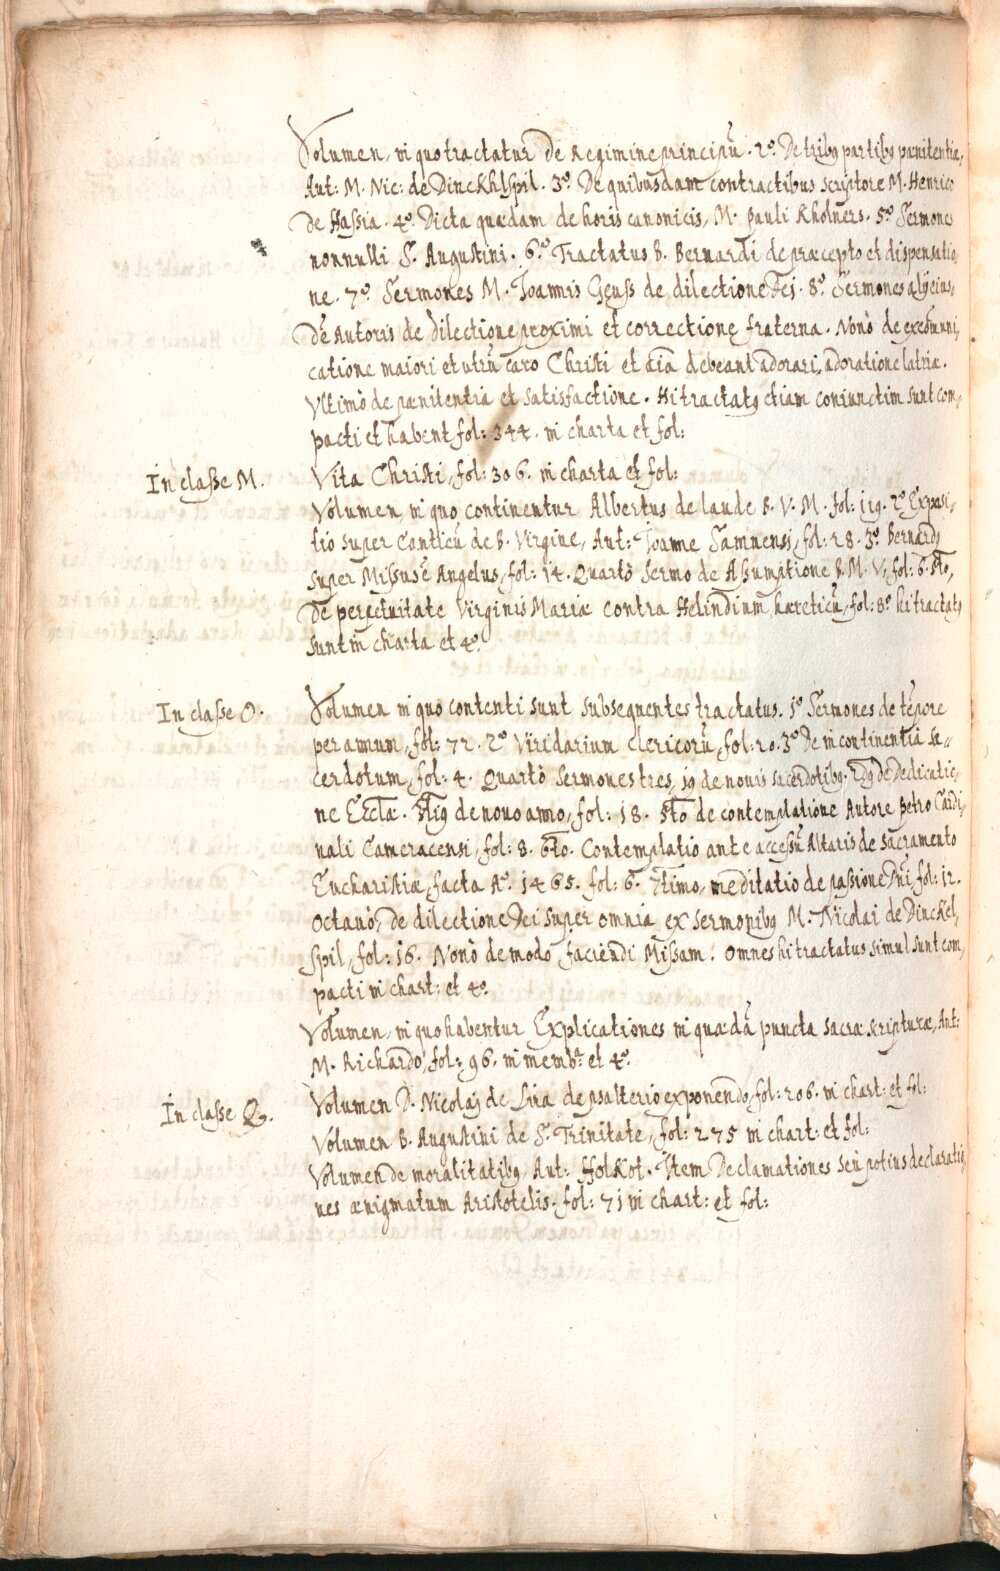 Volumen, in quo tractatur de Regimine principū. 2º. De tribꝯ partibꝯ pænitentiæ,
Aut: M. Nic: de Dinckhlspil. 3º. De quibusdam contractibus scriptore M. Henrico
de Hassia. 4º. Dicta quædam de horis canonicis, M. Pauli Kholners. 5º Sermones
nonnulli S. Augustini. 6.º Tractatus B. Bernardi de præcepto et dispensatio,
ne. 7º. Sermones M. Joannis Geuss de dilectione Dej. 8º. Sermones eius,
dē Autoris de dilectione proximi et correctione fraterna. Nonò de excōmuni,
catione maiori et utrū caro Christi et aīa debeant adorari, adoratione latriæ.
Vltimò de pænitentia et satisfactione. Hi tractatꝯ etiam coniunctim sunt com,
pacti et habent fol: 344. in charta et fol:
In classe M. Vita Christi, fol: 306. in charta et fol:
Volumen, in quo continentur Albertus de laude B. V. M. fol: 119. 2º Exposi,
tio super Canticū de B. Virgine, Aut: Joanne fol: 28. 3º. Bernardꝯ
super Missus ē Angelus, fol: 14. Quartò sermo de Assumptione B. M. V. fol: 6. 5to,
De perpetuitate Virginis Mariæ contra Helindium hæreticū, fol: 8º hi tractatꝯ
sunt in charta et 4º.
In classe O. Volumen in quo contenti sunt subsequentes tractatus. 1º Sermones de tēpore
per annum, fol: 72. 2º Viridarium clericorū, fol: 20. 3º De incontinentia sa,
cerdotum, fol: 4. Quartò sermones tres, 1ꝯ de nouis sacerdotibꝯ. 2dꝯ de Dedicatio,
ne Eccłæ. 3tiꝯ de nouo anno, fol: 18. 5to de contemplatione Autore Petro Cardi,
nali Cameracensi, fol: 8. 6to. Contemplatio ante accessū Altaris de Sacramento
Eucharistiæ, facta Aº. 1465. fol: 6. 7timo, meditatio de passione Dnī, fol: 12.
Octauò, de dilectione Dei super omnia ex sermonibꝯ M. Nicolai de Dinckel,
spil, fol: 16. Nonò de modo faciendi Missam. Omnes hi tractatus simul sunt com,
pacti in chart: et 4º.
Volumen, in quo habentur Explicationes in quædā puncta sacræ scripturæ, Aut:
M. Richardo, fol: 96. in memb: et 4º.
In classe Q. Volumen D. Nicolaj de Lira de psalterio exponendo, fol: 206. in chart: et fol:
Volumen B. Augustini de S. Trinitate, fol: 275 in chart: et fol:
Volumen de moralitatibꝯ, Aut: Hholkot. Item Declamationes seu potius declaratio,
nes ænigmatum Aristotelis. fol: 71 in chart: et fol: